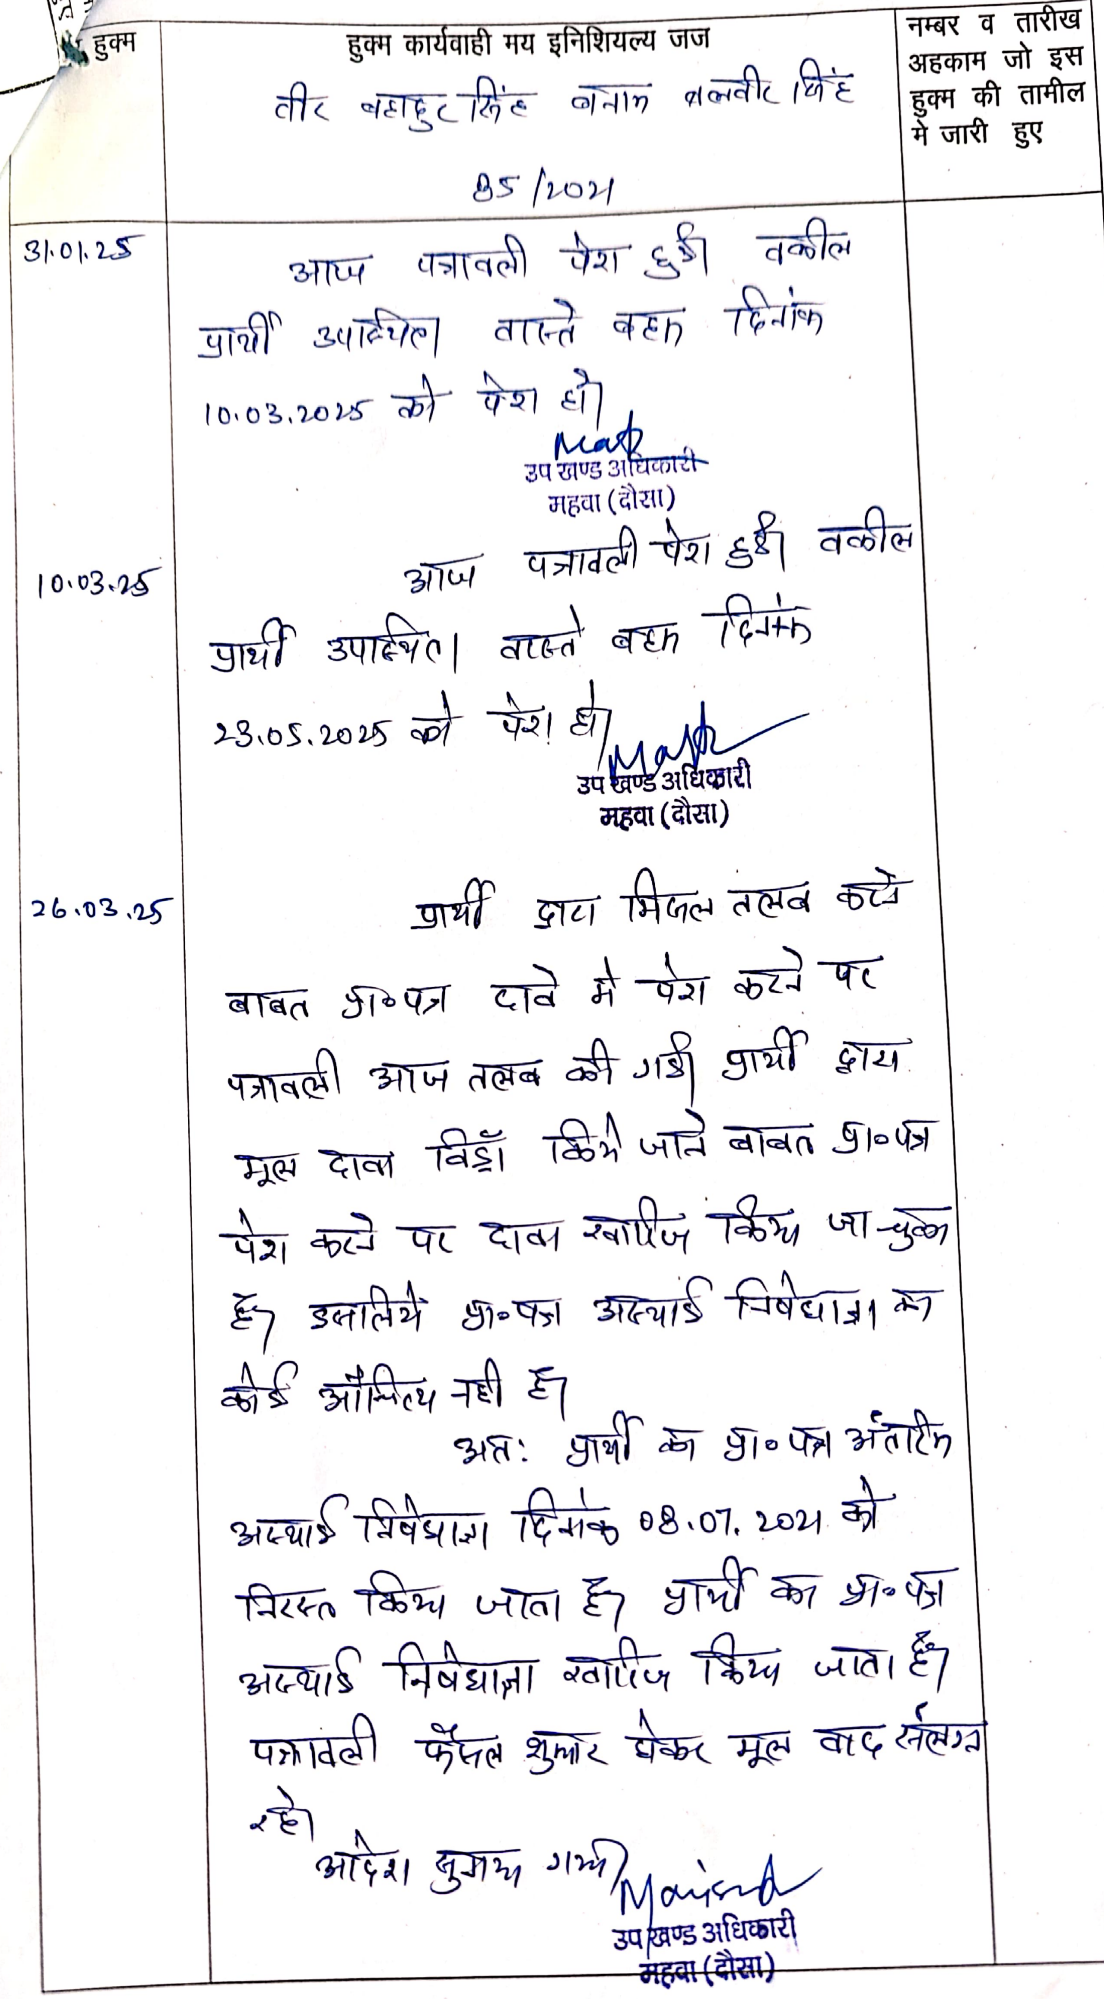 हुक्म
हुक्म कार्यवाही मय इनिशियल्य जज
नम्बर व तारीख
अहकाम जो इस
हुक्म की तामील
मे जारी हुए
वीर बहादुर सिंह बनाम बलवीर सिंह
85/2021
31.01.25
आज पत्रावली पेश हुई। वकील
प्रार्थी उपस्थित। वास्ते बहस दिनांक
10.03.2025 को पेश हो।
उप खण्ड अधिकारी
महवा (दौसा)
10.03.25
आज पत्रावली पेश हुई। वकील
प्रार्थी उपस्थित। वास्ते बहस दिनांक
23.05.2025 को पेश हो।
उप खण्ड अधिकारी
महवा (दौसा)
26.03.25
प्रार्थी द्वारा मिसल तलब करने
बाबत प्रा०पत्र दावे मे पेश करने पर
पत्रावली आज तलब की गई। प्रार्थी द्वारा
मूल दावा विड्रॉ किये जाने बाबत प्रा०पत्र
पेश करने पर दावा खारिज किया जा चुका
है। इसलिये प्रा०पत्र अस्थाई निषेधाज्ञा का
कोई औचित्य नही है।
अत: प्रार्थी का प्रा०पत्र अंतरिम
अस्थाई निषेधाज्ञा दिनांक 08.07.2021 को
निरस्त किया जाता है। प्रार्थी का प्रा०पत्र
अस्थाई निषेधाज्ञा खारिज किया जाता है।
पत्रावली फैसल शुमार होकर मूल वाद संलग्न
रहे।
आदेश सुनाया गया।
उप खण्ड अधिकारी
महवा (दौसा)